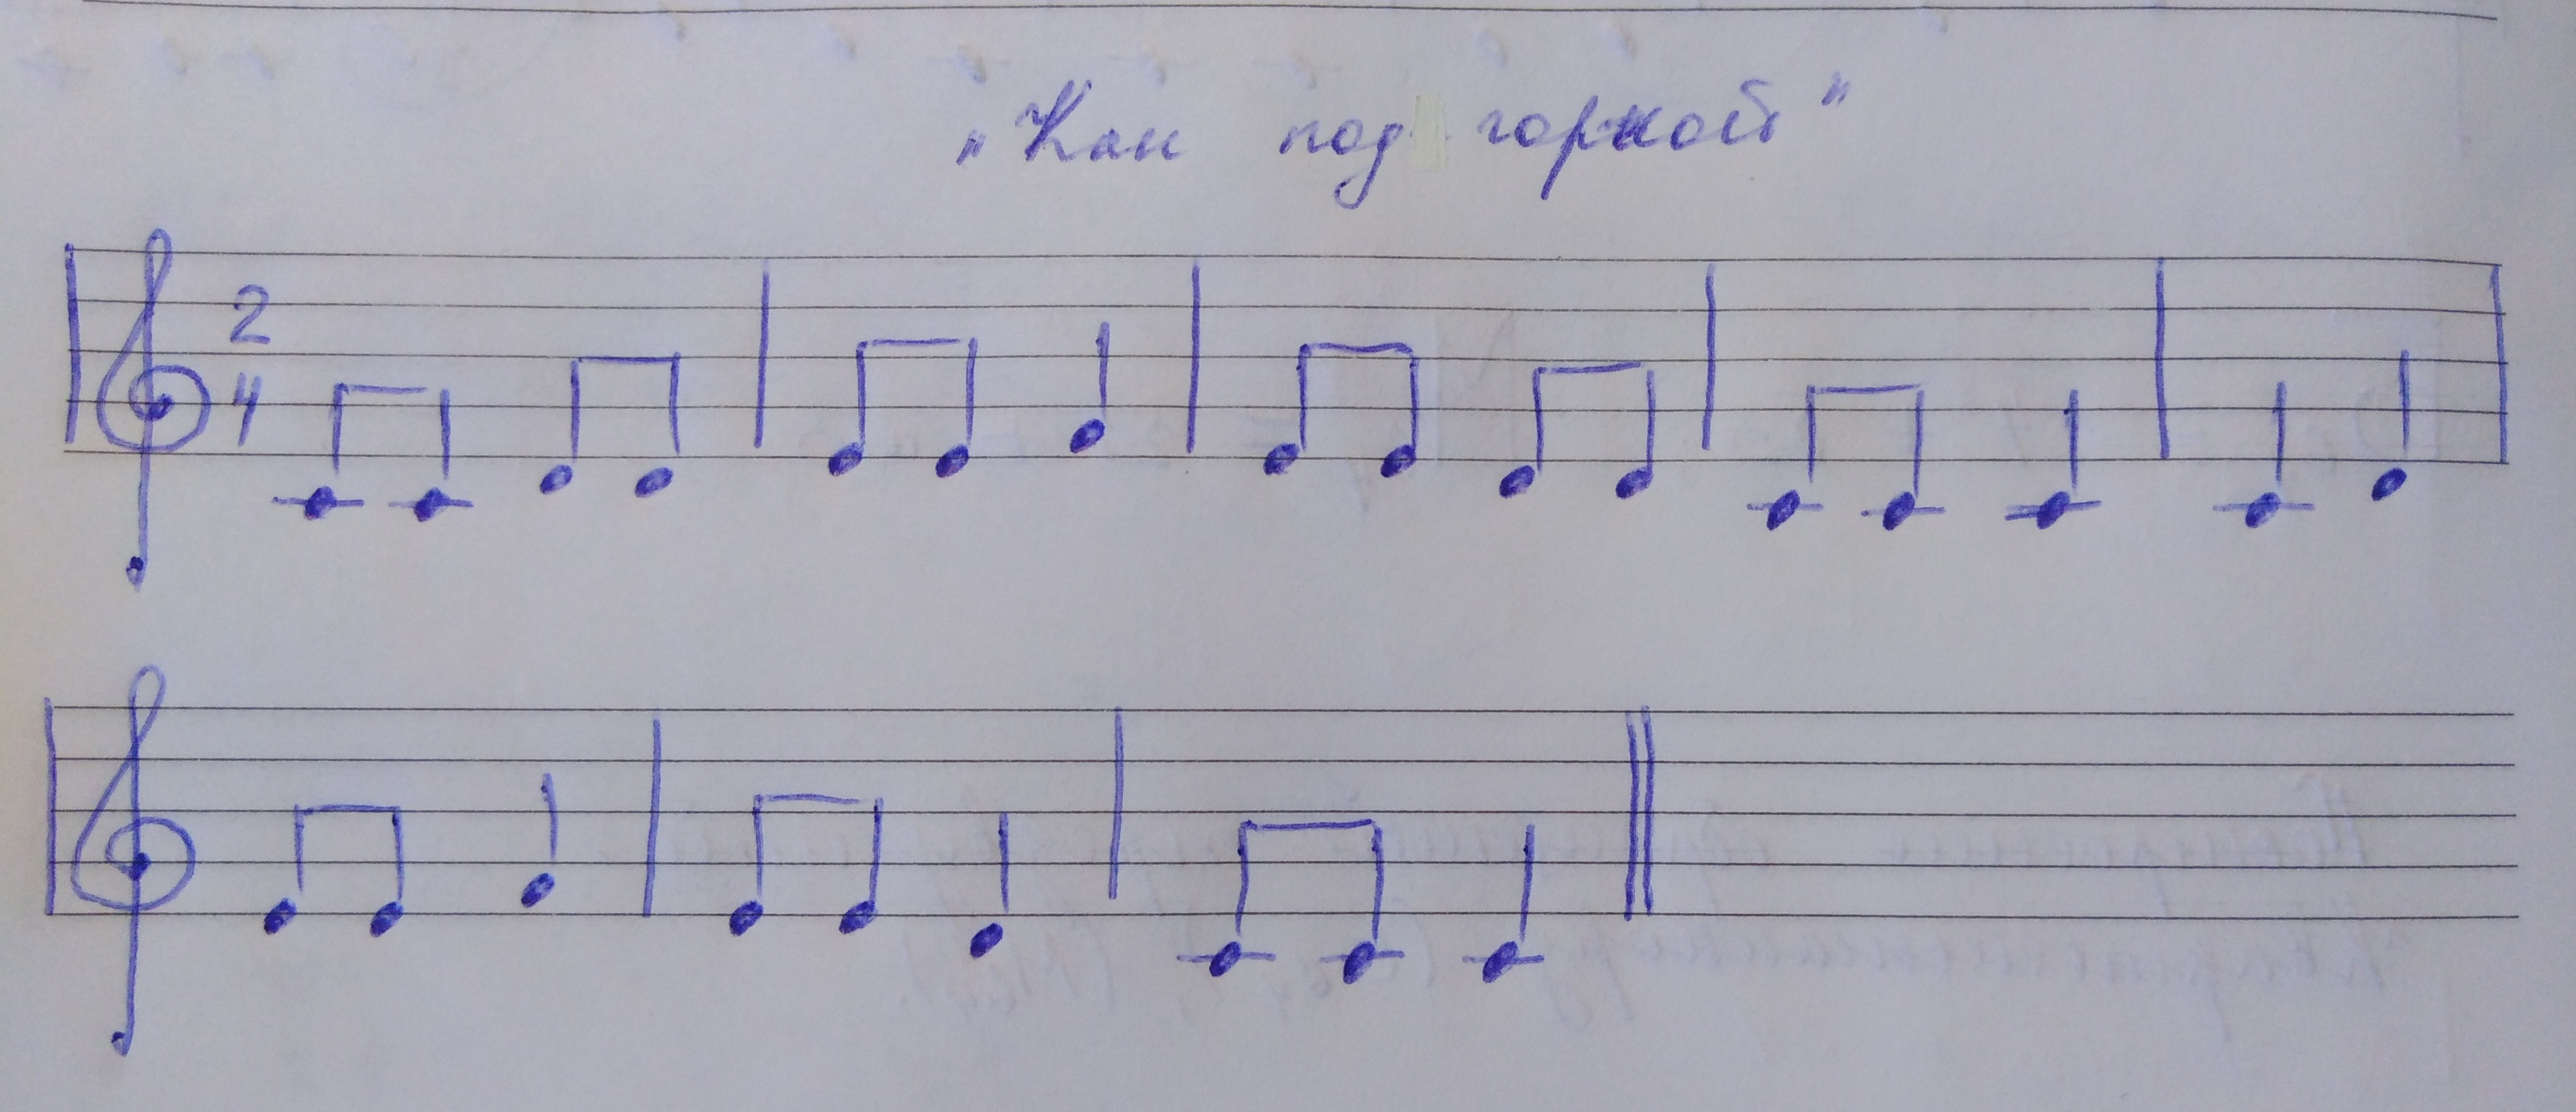 „Как под горкой"
2
4